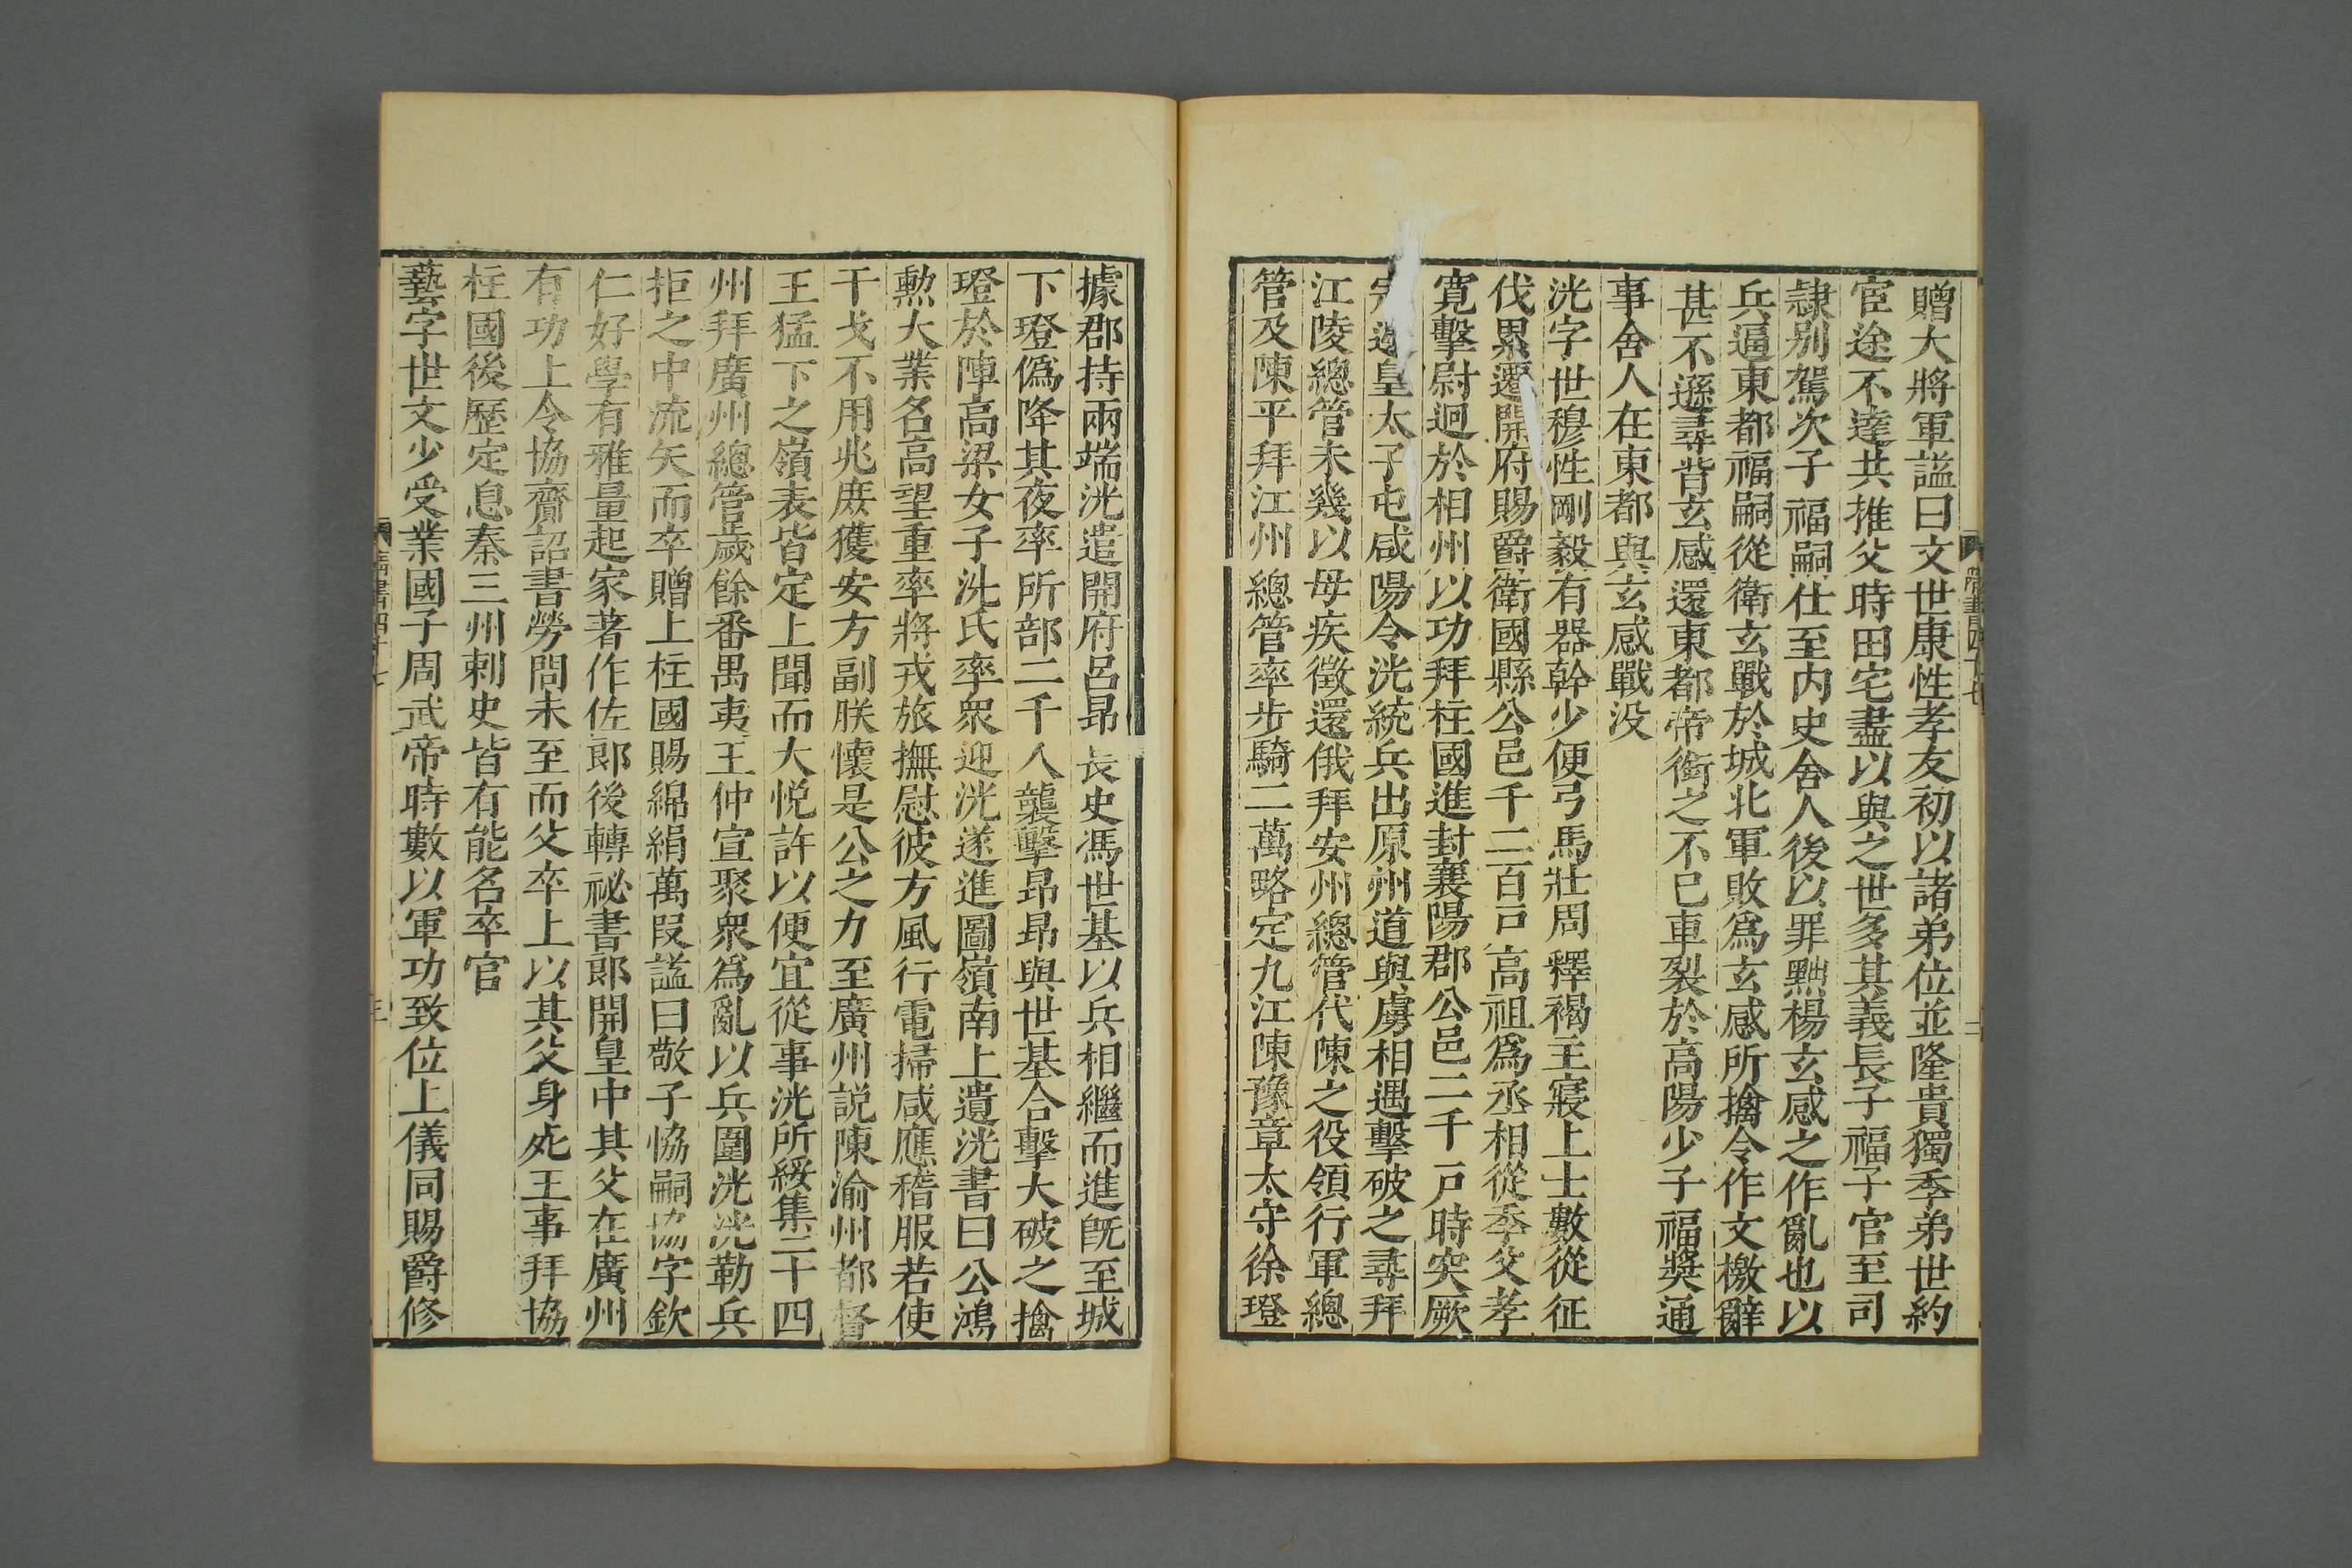 贈大將軍謚曰文世康性孝友初以諸弟位並隆貴獨季弟世約
宦途不達共推父時田宅盡以與之世多其義長子福子官至司
隷别駕次子福嗣仕至内史舍人後以罪黜楊玄感之作亂也以
兵逼東都福嗣從衛玄戰於城北軍敗爲玄感所擒令作文檄辭
甚不遜尋背玄感還東都帝銜之不已車裂於高陽少子福奬通
事舍人在東都與玄感戰没
洸字世穆性剛毅有器幹少便弓馬壯周釋褐主寢上士數從征
伐累遷開府賜爵衛國縣公邑千二百戸高祖爲丞相從季父孝
寛擊尉迥於相州以功拜柱國進封襄陽郡公邑二千戸時突厥
寇邊皇太子屯咸陽令洸統兵出原州道與虜相遇擊破之尋拜
江陵總管未幾以母疾徵還俄拜安州總管代陳之役領行軍總
管及陳平拜江州總管率步騎二萬略定九江陳豫章太守徐璒
隋書四十七
二
據郡持兩端洸遣開府呂昂長史馮世基以兵相繼而進旣至城
下璒僞降其夜率所部二千人襲擊昂昂與世基合擊大破之擒
璒於陣高梁女子洗氏率衆迎洸遂進圖嶺南上遺洸書曰公鴻
勲大業名高望重率將戎旅撫慰彼方風行電掃咸應稽服若使
干戈不用兆庶獲安方副朕懷是公之力至廣州說陳渝州都督
王猛下之嶺表皆定上聞而大悅許以便宜從事洸所綏集二十四
州拜廣州總管歲餘番禺夷王仲宣聚衆爲亂以兵圍洸洸勒兵
拒之中流矢而卒贈上柱國賜綿絹萬段謚曰敬子協嗣協字欽
仁好學有雅量起家著作佐郎後轉祕書郎開皇中其父在廣州
有功上令協齎詔書勞問未至而父卒上以其父身死王事拜協
柱國後歷定息秦三州刺史皆有能名卒官
藝字世文少受業國子周武帝時數以軍功致位上儀同賜爵修
隋書四十七
三